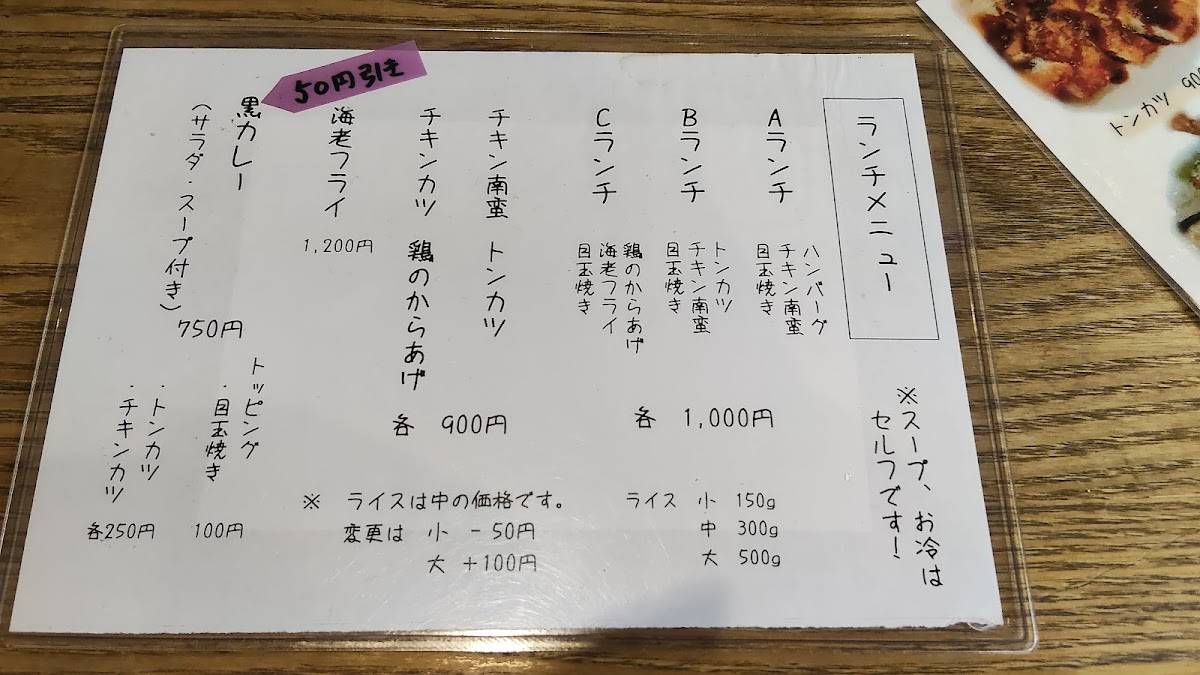 ランチメニュー
※スープ、お冷は
セルフです!
Aランチ
ハンバーグ
チキン南蛮
目玉焼き
Bランチ
トンカツ
チキン南蛮
目玉焼き
Cランチ
鶏のからあげ
海老フライ
目玉焼き
各 1,000円
チキン南蛮 トンカツ
チキンカツ 鶏のからあげ
各 900円
海老フライ 1,200円
50円引き
黒カレー
(サラダ・スープ付き)
750円
トッピング
・目玉焼き
100円
・トンカツ
・チキンカツ
各250円
ライス 小 150g
中 300g
大 500g
※ ライスは中の価格です。
変更は 小 -50円
大 +100円
トンカツ